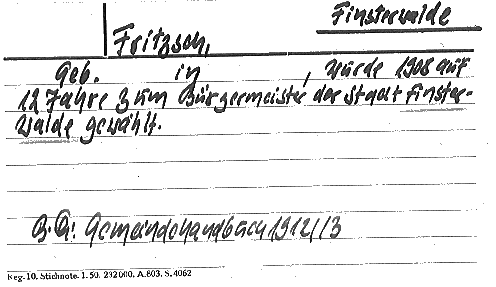 Finsterwalde
Fritzsch,
Geb. in , wurde 1908 auf
12 Jahre zum Bürgermeister der Stadt Finster-
walde gewählt.
B.Q.: Gemeindehandbuch 1912/13
Reg. 10. Stichnote. 1. 50. 232000. A.803. S. 4062